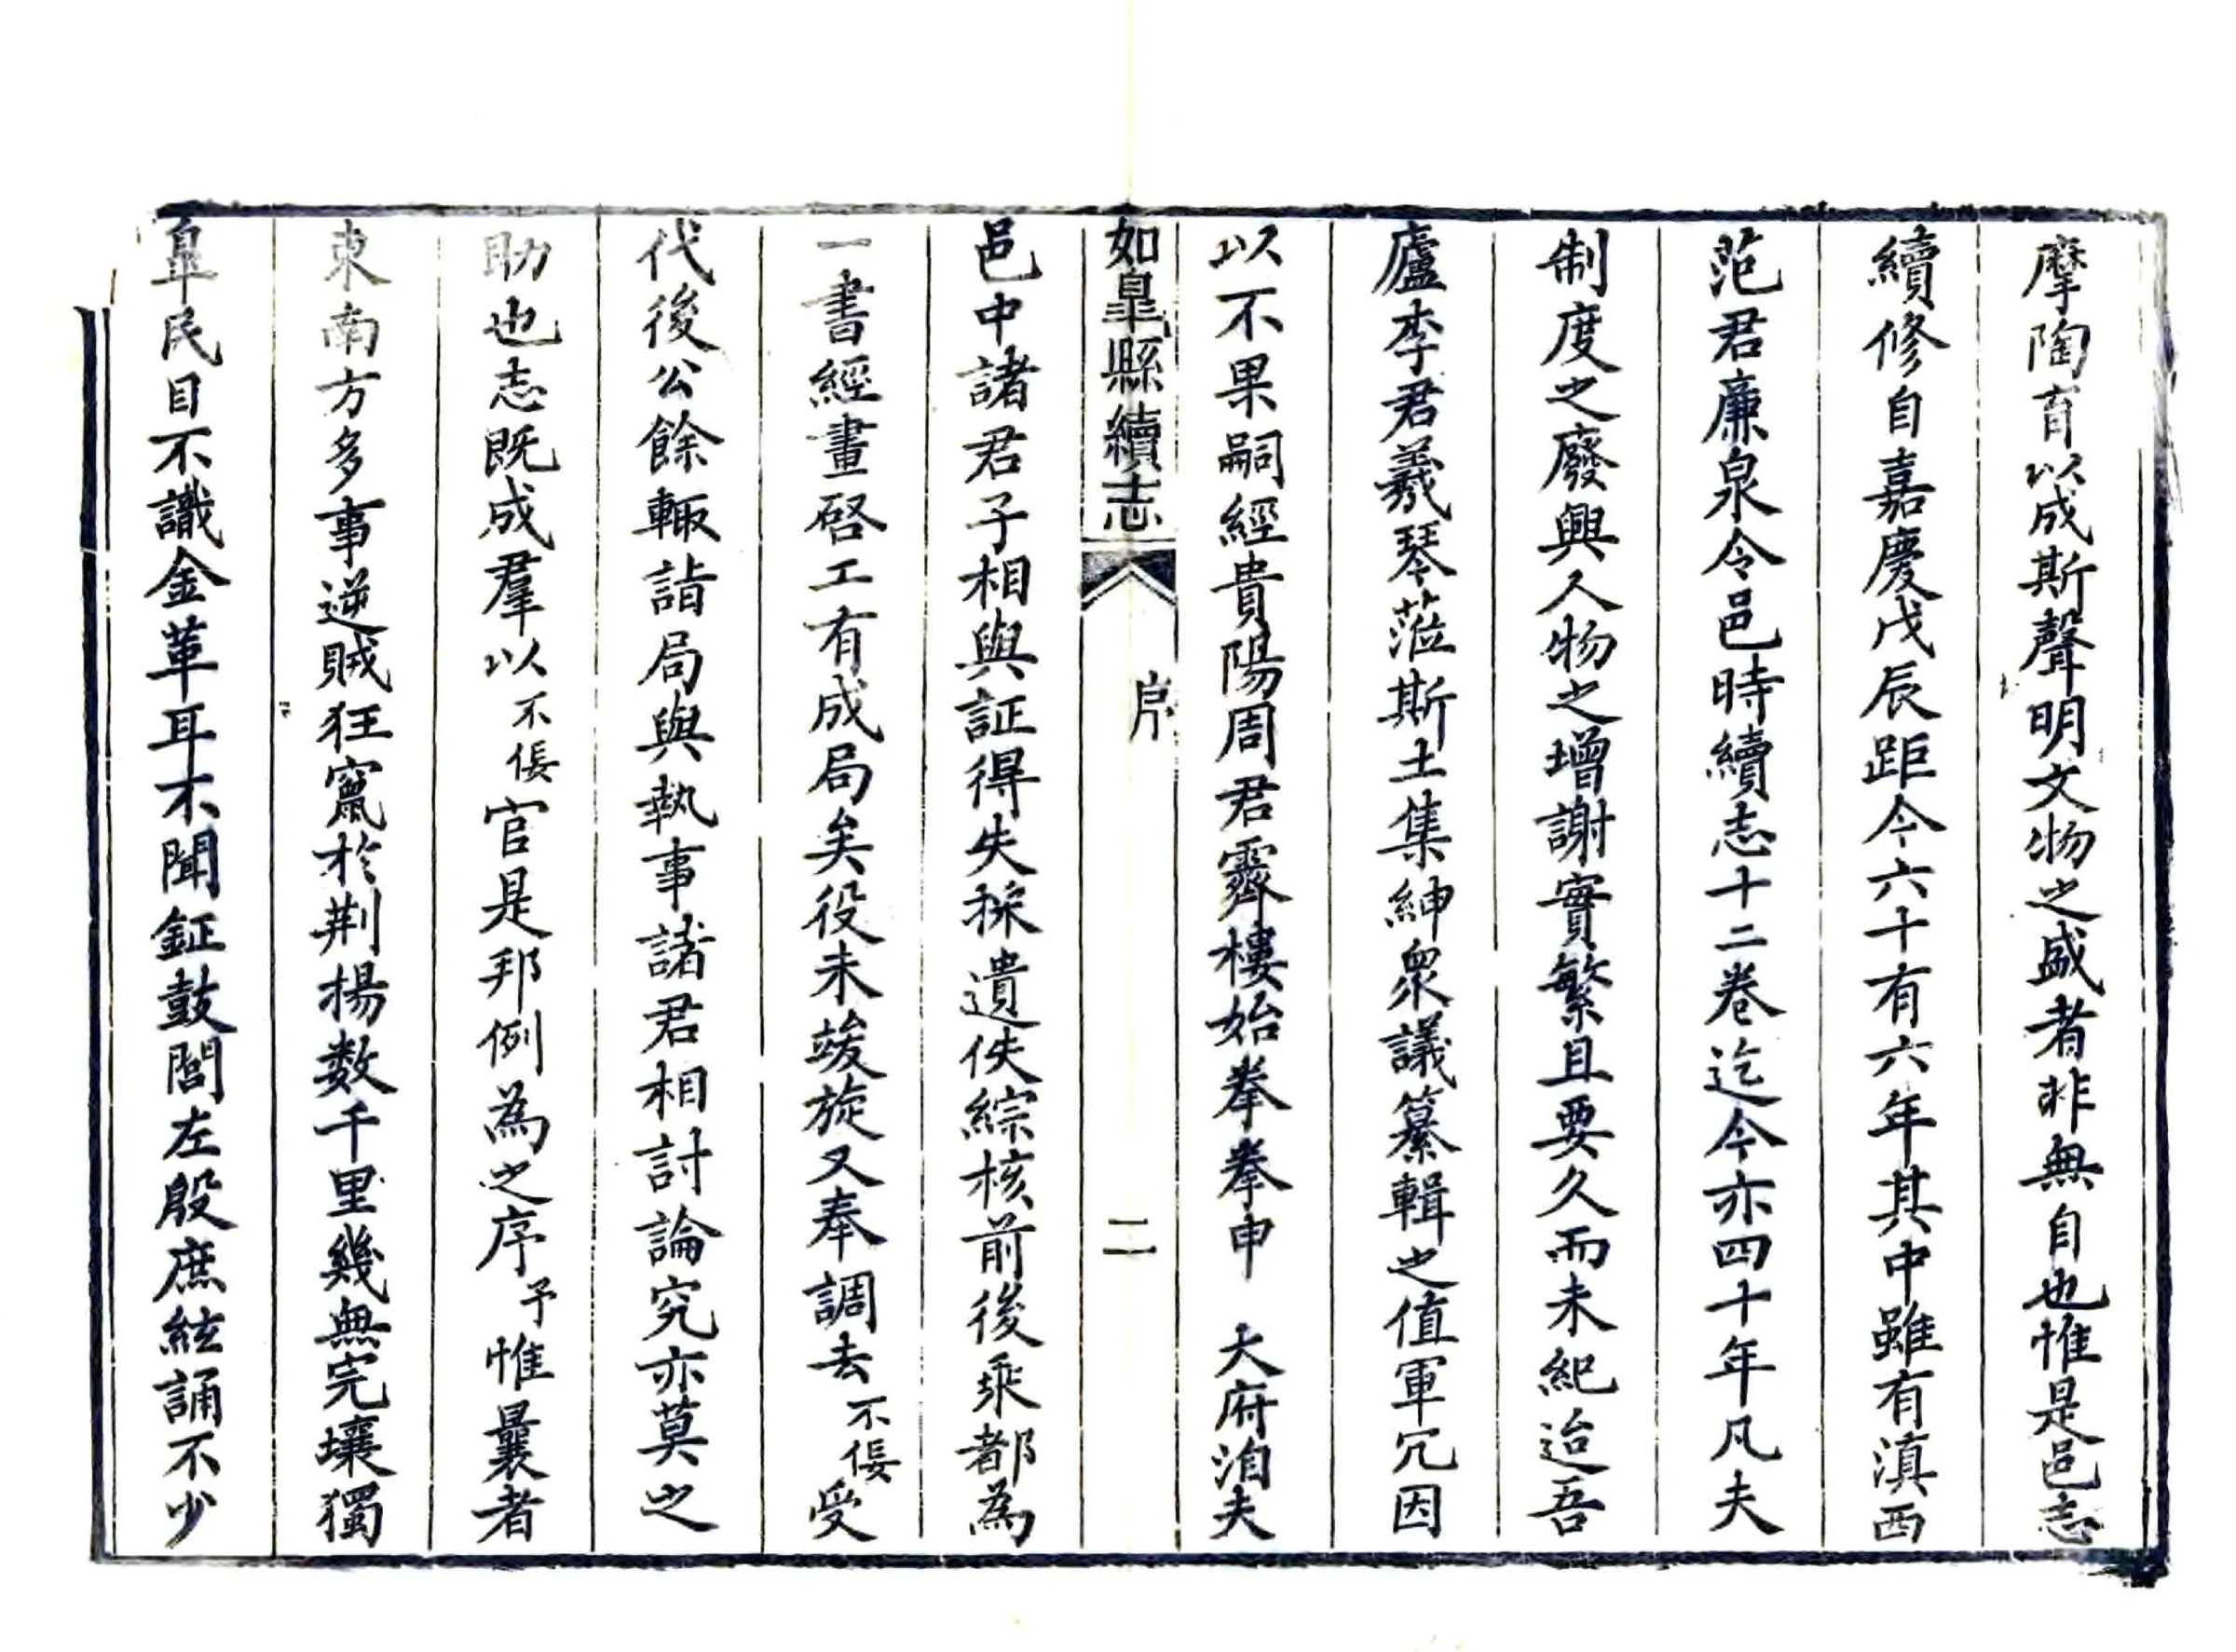 摩陶育以成斯聲明文物之盛者非無自也惟是邑志
續修自嘉慶戊辰距今六十有六年其中雖有滇西
范君廉泉令邑時續志十二卷迄今亦四十年凡夫
制度之廢興人物之增謝實繁且要久而未紀迨吾
廬李君羲琴蒞斯土集紳衆議纂輯之值軍冗因
以不果嗣經貴陽周君霽樓始拳拳申 大府洎夫
如皐縣續志 序 二
邑中諸君子相與証得失採遺佚綜核前後乘都為
一書經畫啓工有成局矣役未竣旋又奉調去不佞受
代後公餘輙詣局與執事諸君相討論究亦莫之
助也志既成羣以不佞官是邦例為之序予惟曩者
東南方多事逆賊狂竄於荆揚数千里幾無完壤獨
臯民目不識金革耳不聞鉦鼓閭左殷庶絃誦不少